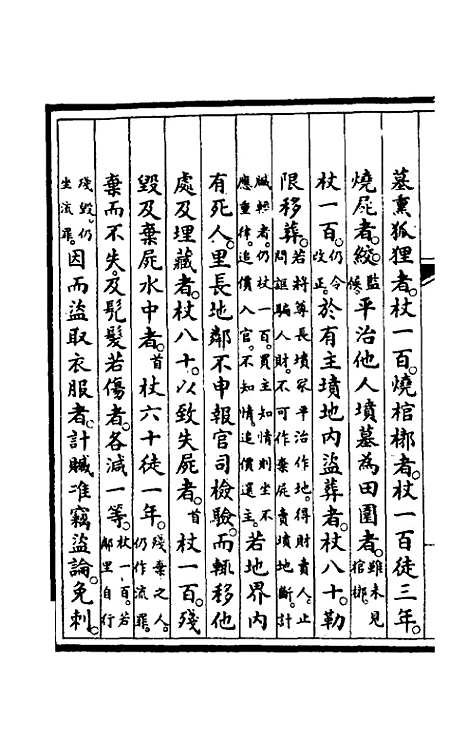 墓熏狐狸者。杖一百。燒棺槨者。杖一百徒三年。
燒屍者。絞。監候。平治他人墳墓為田園者。雖未見棺槨。
杖一百。仍令改正。於有主墳地內盜葬者。杖八十。勒
限移葬。若將尊長墳冢平治作地。得財賣人。止問誆騙人財。不可作棄屍賣墳地斷。計
贓輕者。仍杖一百。買主知情。則坐不應重律。追價入官。不知情。追價還主。若地界內
有死人。里長地鄰不申報官司檢驗。而輒移他
處及埋藏者。杖八十。以致失屍者。首杖一百。殘
毀及棄屍水中者。首杖六十徒一年。殘棄之人。仍作流罪。
棄而不失。及髡髮若傷者。各減一等。杖一百。若鄰里自行
殘毀。仍坐流罪。因而盜取衣服者。計贓准竊盜論。免刺。